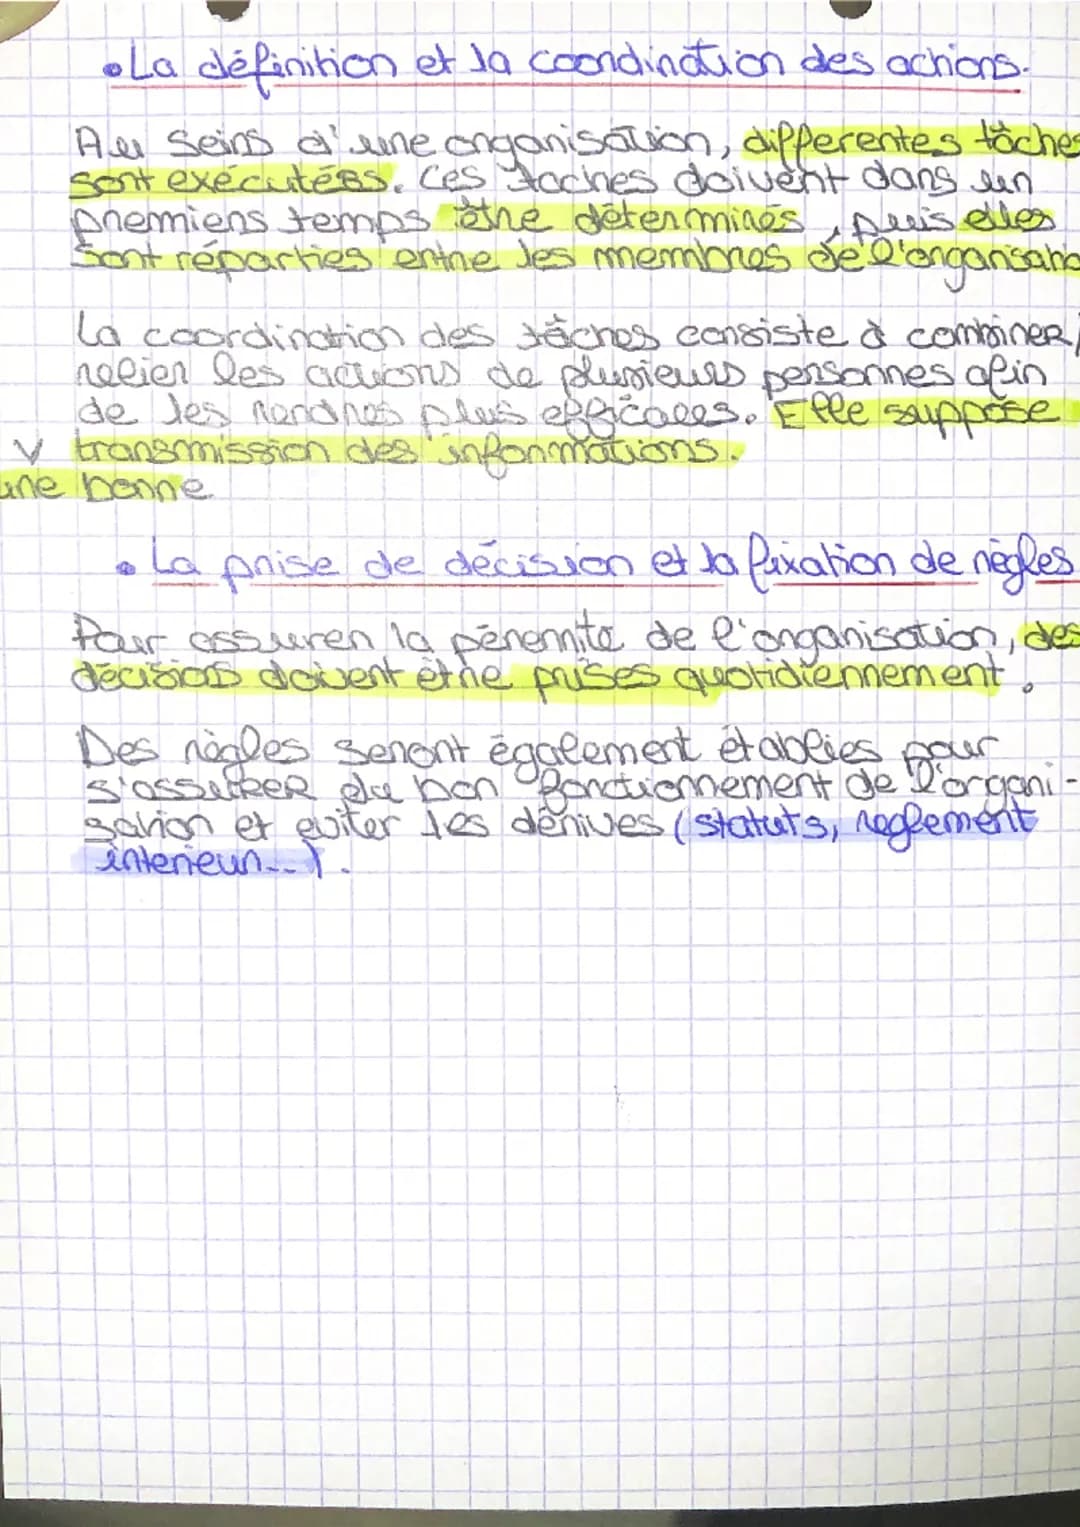 • La définition et la coordination des actions.
Au seins d'une organisation, differentes tâches
sont exécutées. Ces taches doivent dans un
premiers temps être déterminés, puis elles
sont réparties entre les membres de l'organisatio
La coordination des tâches consiste à combiner/
relier les actions de plusieurs personnes afin
de les rendres plus efficaces. Elle suppose
V transmission des informations.
une bonne
• La prise de décision et la fixation de règles
Pour assurer la pérennité de l'organisation, des
décisions doivent être prises quotidiennement.
Des règles seront également établies pour
s'assurer du bon fonctionnement de l'organi-
sation et eviter les dérives (statuts, reglement
interieur...).